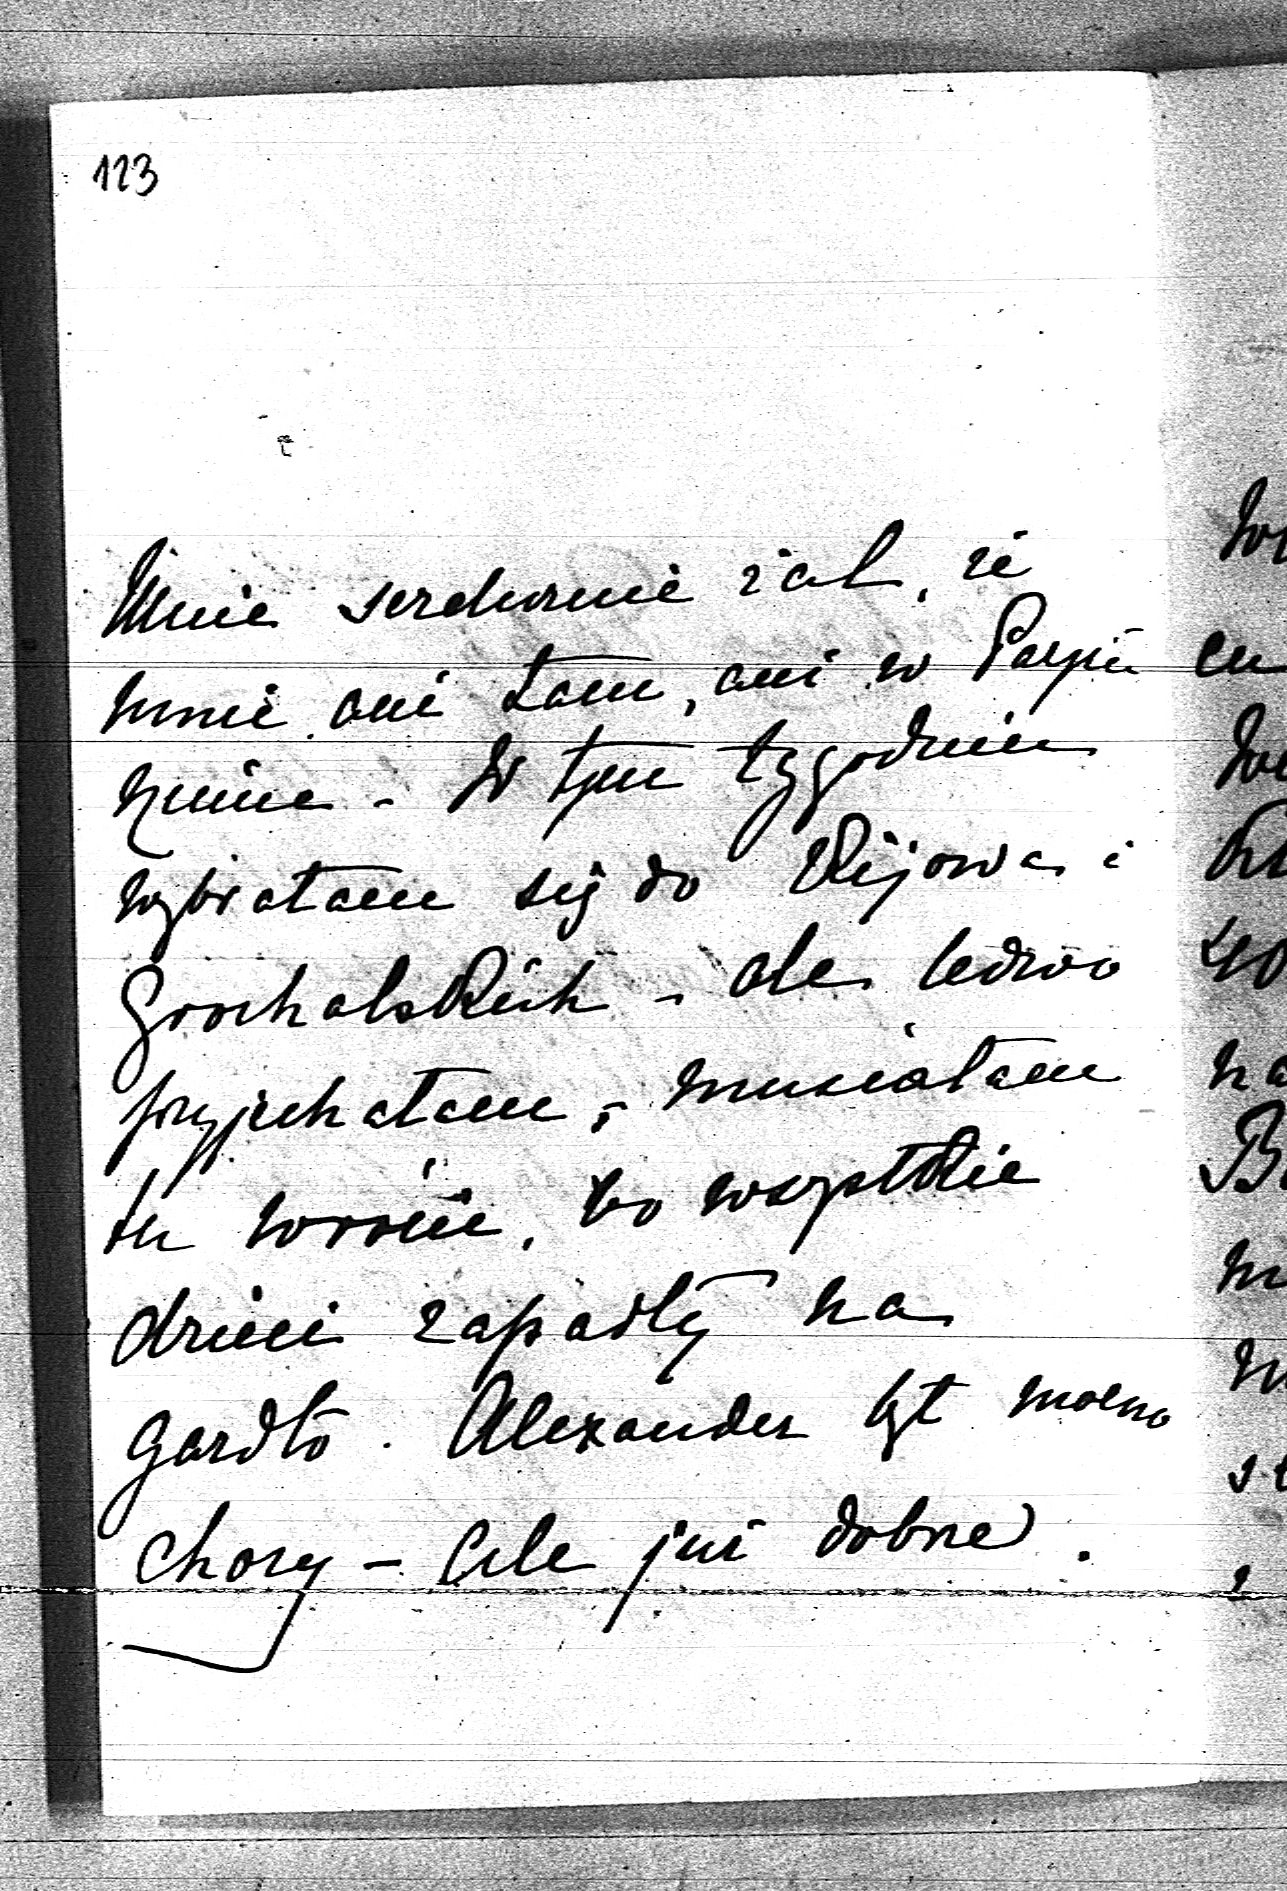 123
Mnie serdecznie żal, że
mnie ani tam, ani w Paryżu
niema - W tym tygodniu
wybrałam się do Kijowa i
Grocholskich - ale ledwo
przyjechałam, musiałam
tu wrócić, bo wszystkie
dzieci zapadły na
gardło. Alexander był mocno
chory - Ale już dobrze.